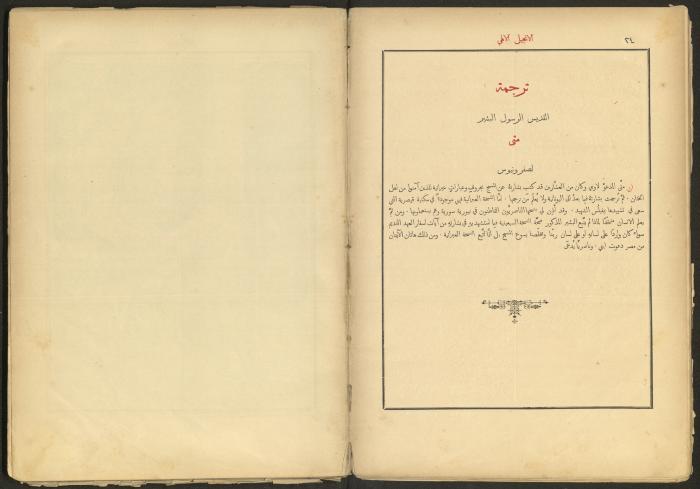 ٢٤
الانجيل الالهي
ترجمة
القديس الرسول البشير
متى
لصفرونيوس
ان متى المدعوّ لاوي وكان من العشارين قد كتب بشارتهُ عن المسيح بحروفٍ وعباراتٍ عبرانية للذين آمنوا من اهل
الختان . ثم تُرجمت بشارتهُ فيما بعد الى اليونانية ولا يُعلَم مَن ترجمها . امَّا النسخة العبرانية فهي موجودة في مكتبة قيصرية التي
سعى في تشييدها بمفيلُس الشهيد . وقد أُذن لي الناصريون القاطنون في سورية وهم يستعملونها . ومن ثمَّ
يعلم الانسان البشير المذكور النسخة السبعينية فيما استشهد بهِ في بشارتهِ من آيات اسفار العهد القديم
سواء كان واردًا على لسانهِ او على لسان ربنا ومخلصنا يسوع المسيح بل انهُ اتَّبع النسخة العبرانية . ومن ذلك هاتان الآيتان
من مصر دعوت ابني . وناصريًّا يُدعَى